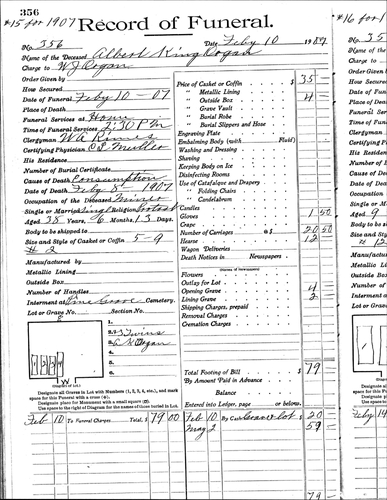 356
#15 for 1907
Record of Funeral.
No. 356 Date Feby 10 1907
Name of the Deceased Albert King Cogan
Charge to W J Cogan
Order Given by
How Secured
Date of Funeral Feby 10 - 07
Place of Death
Funeral Services at Home
Time of Funeral Services 2:30 P M
Clergyman W A
Certifying Physician
His Residence
Number of Burial Certificate
Cause of Death Consumption
Date of Death Feby 8th 1907
Occupation of the Deceased Miner
Single or Married Single Religion Protest
Aged 38 Years 6 Months 13 Days.
Body to be shipped to
Size and Style of Casket or Coffin 5-9
# 2
Manufactured by
Metallic Lining
Outside Box
Number of Handles
Interment at Pine Grove Cemetery.
Lot or Grave No. Section No.
1.
2. 3 Twins
3. Cogan
4.
5.
6.
(Diagram of Lot.)
W
Designate all Graves in Lot with Numbers (1, 2, 3, 4, etc.), and mark
space for this Funeral with a cross (+).
Designate place for Monument with a small square (□).
Use space to the right of Diagram for the names of those buried in Lot.
Price of Casket or Coffin $ 35
" Metallic Lining
" Outside Box 4
" Grave Vault
" Burial Robe
" Burial Slippers and Hose
Engraving Plate
Embalming Body (with Fluid)
Washing and Dressing
Shaving
Keeping Body on Ice
Disinfecting Rooms
Use of Catafalque and Drapery
" Folding Chairs
" Candelabrum
Candles
Gloves 1 50
Crape
Number of Carriages @$ 20 50
Hearse 12
Wagon Deliveries
Death Notices in Newspapers
Flowers
Outlay for Lot 4
Opening Grave 2
Lining Grave
Shipping Charges, prepaid
Removal Charges
Cremation Charges
Total Footing of Bill $ 79
By Amount Paid in Advance
Balance
Entered into Ledger, page or below.
Feb 10 To Funeral Charges Total, $ 79 00
Feb 10 By Cash Grave & lot $ 20
May 2 59
79
#16 for 1
No. 35
Name of
Charge to
Order Giv
How Secu
Date of F
Place of D
Funeral S
Time of F
Clergyma
Certifying
His Resid
Number o
Cause of D
Date of D
Occupatio
Single or
Aged 9
Body to b
Size and S
# 12
Manufact
Metallic L
Outside B
Number o
Interment
Lot or Gr
Designate
space for t
Designate
Use space
Feby 14